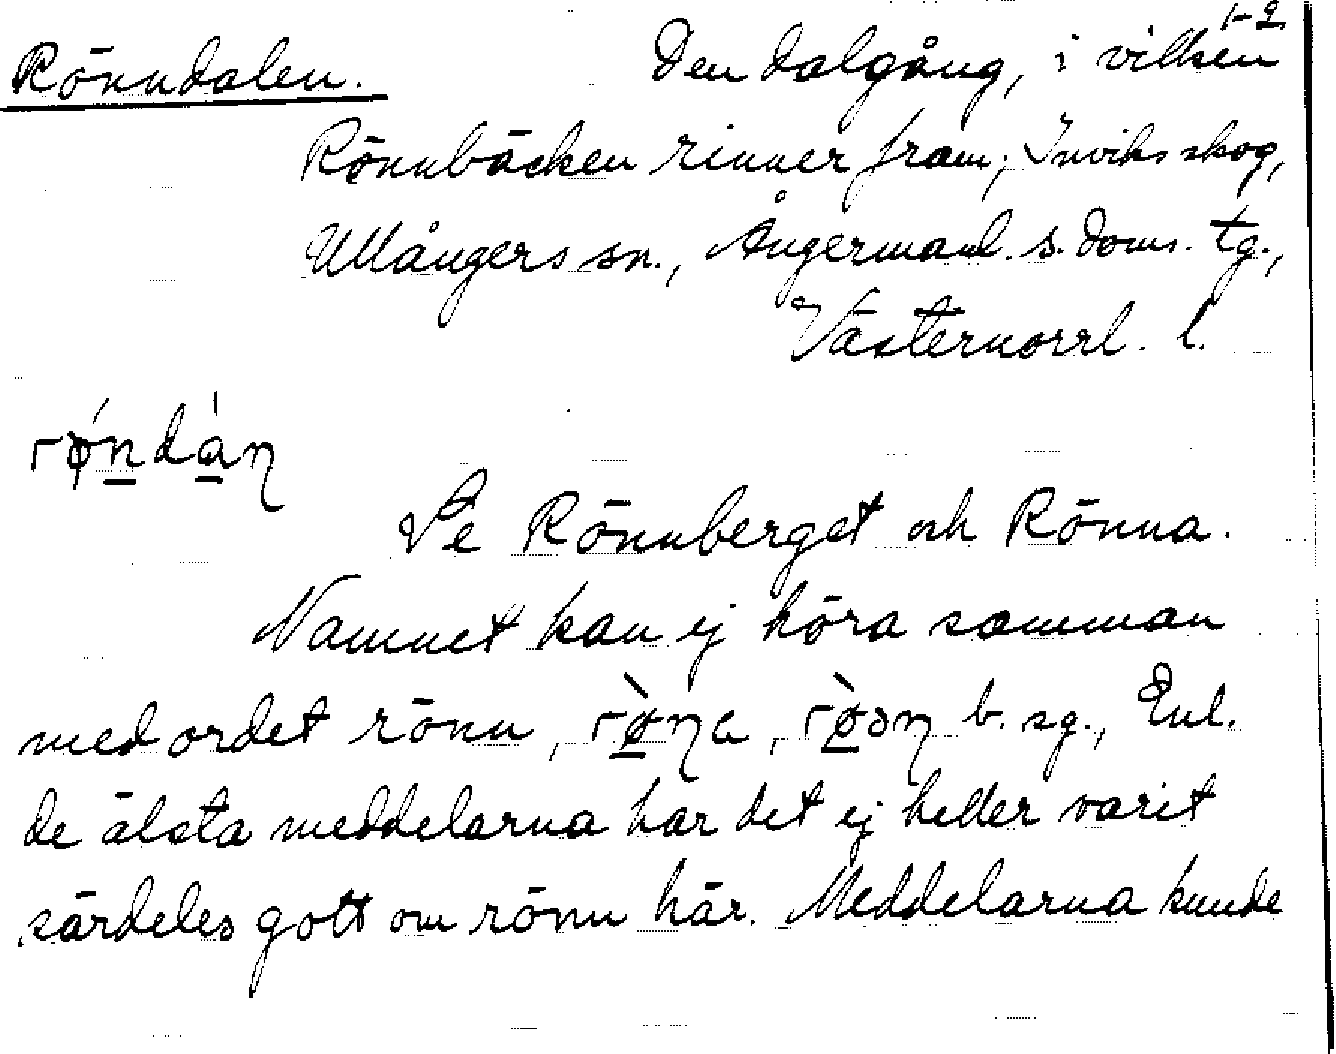 1-2
Rönndalen. Den dalgång, i vilken
Rönnbäcken rinner fram; Inviks skog,
Ullångers sn., Ångermanl. s. doms. tg.,
Västernorrl. l.
rǿndáṇ
Se Rönnberget och Rönna.
Namnet kan ej höra samman
med ordet rönn, b. sg., Enl.
de älsta meddelarna har det ej heller varit
särdeles gott om rönn här. Meddelarna kunde